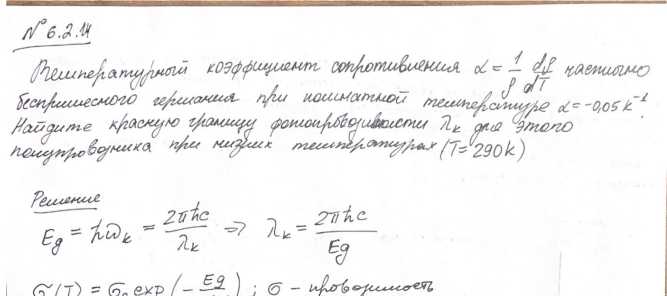 № 6.2.14
Температурный коэффициент сопротивления α = 1/ρ dρ/dT частично
беспримесного германия при комнатной температуре α = -0,05 K⁻¹.
Найдите красную границу фотопроводимости λₖ для этого
полупроводника при низких температурах (T = 290 K)
Решение
Eg = ħωₖ = 2πħc/λₖ ⇒ λₖ = 2πħc/Eg
σ(T) = σ₀ exp(-Eg/ ); σ - проводимость